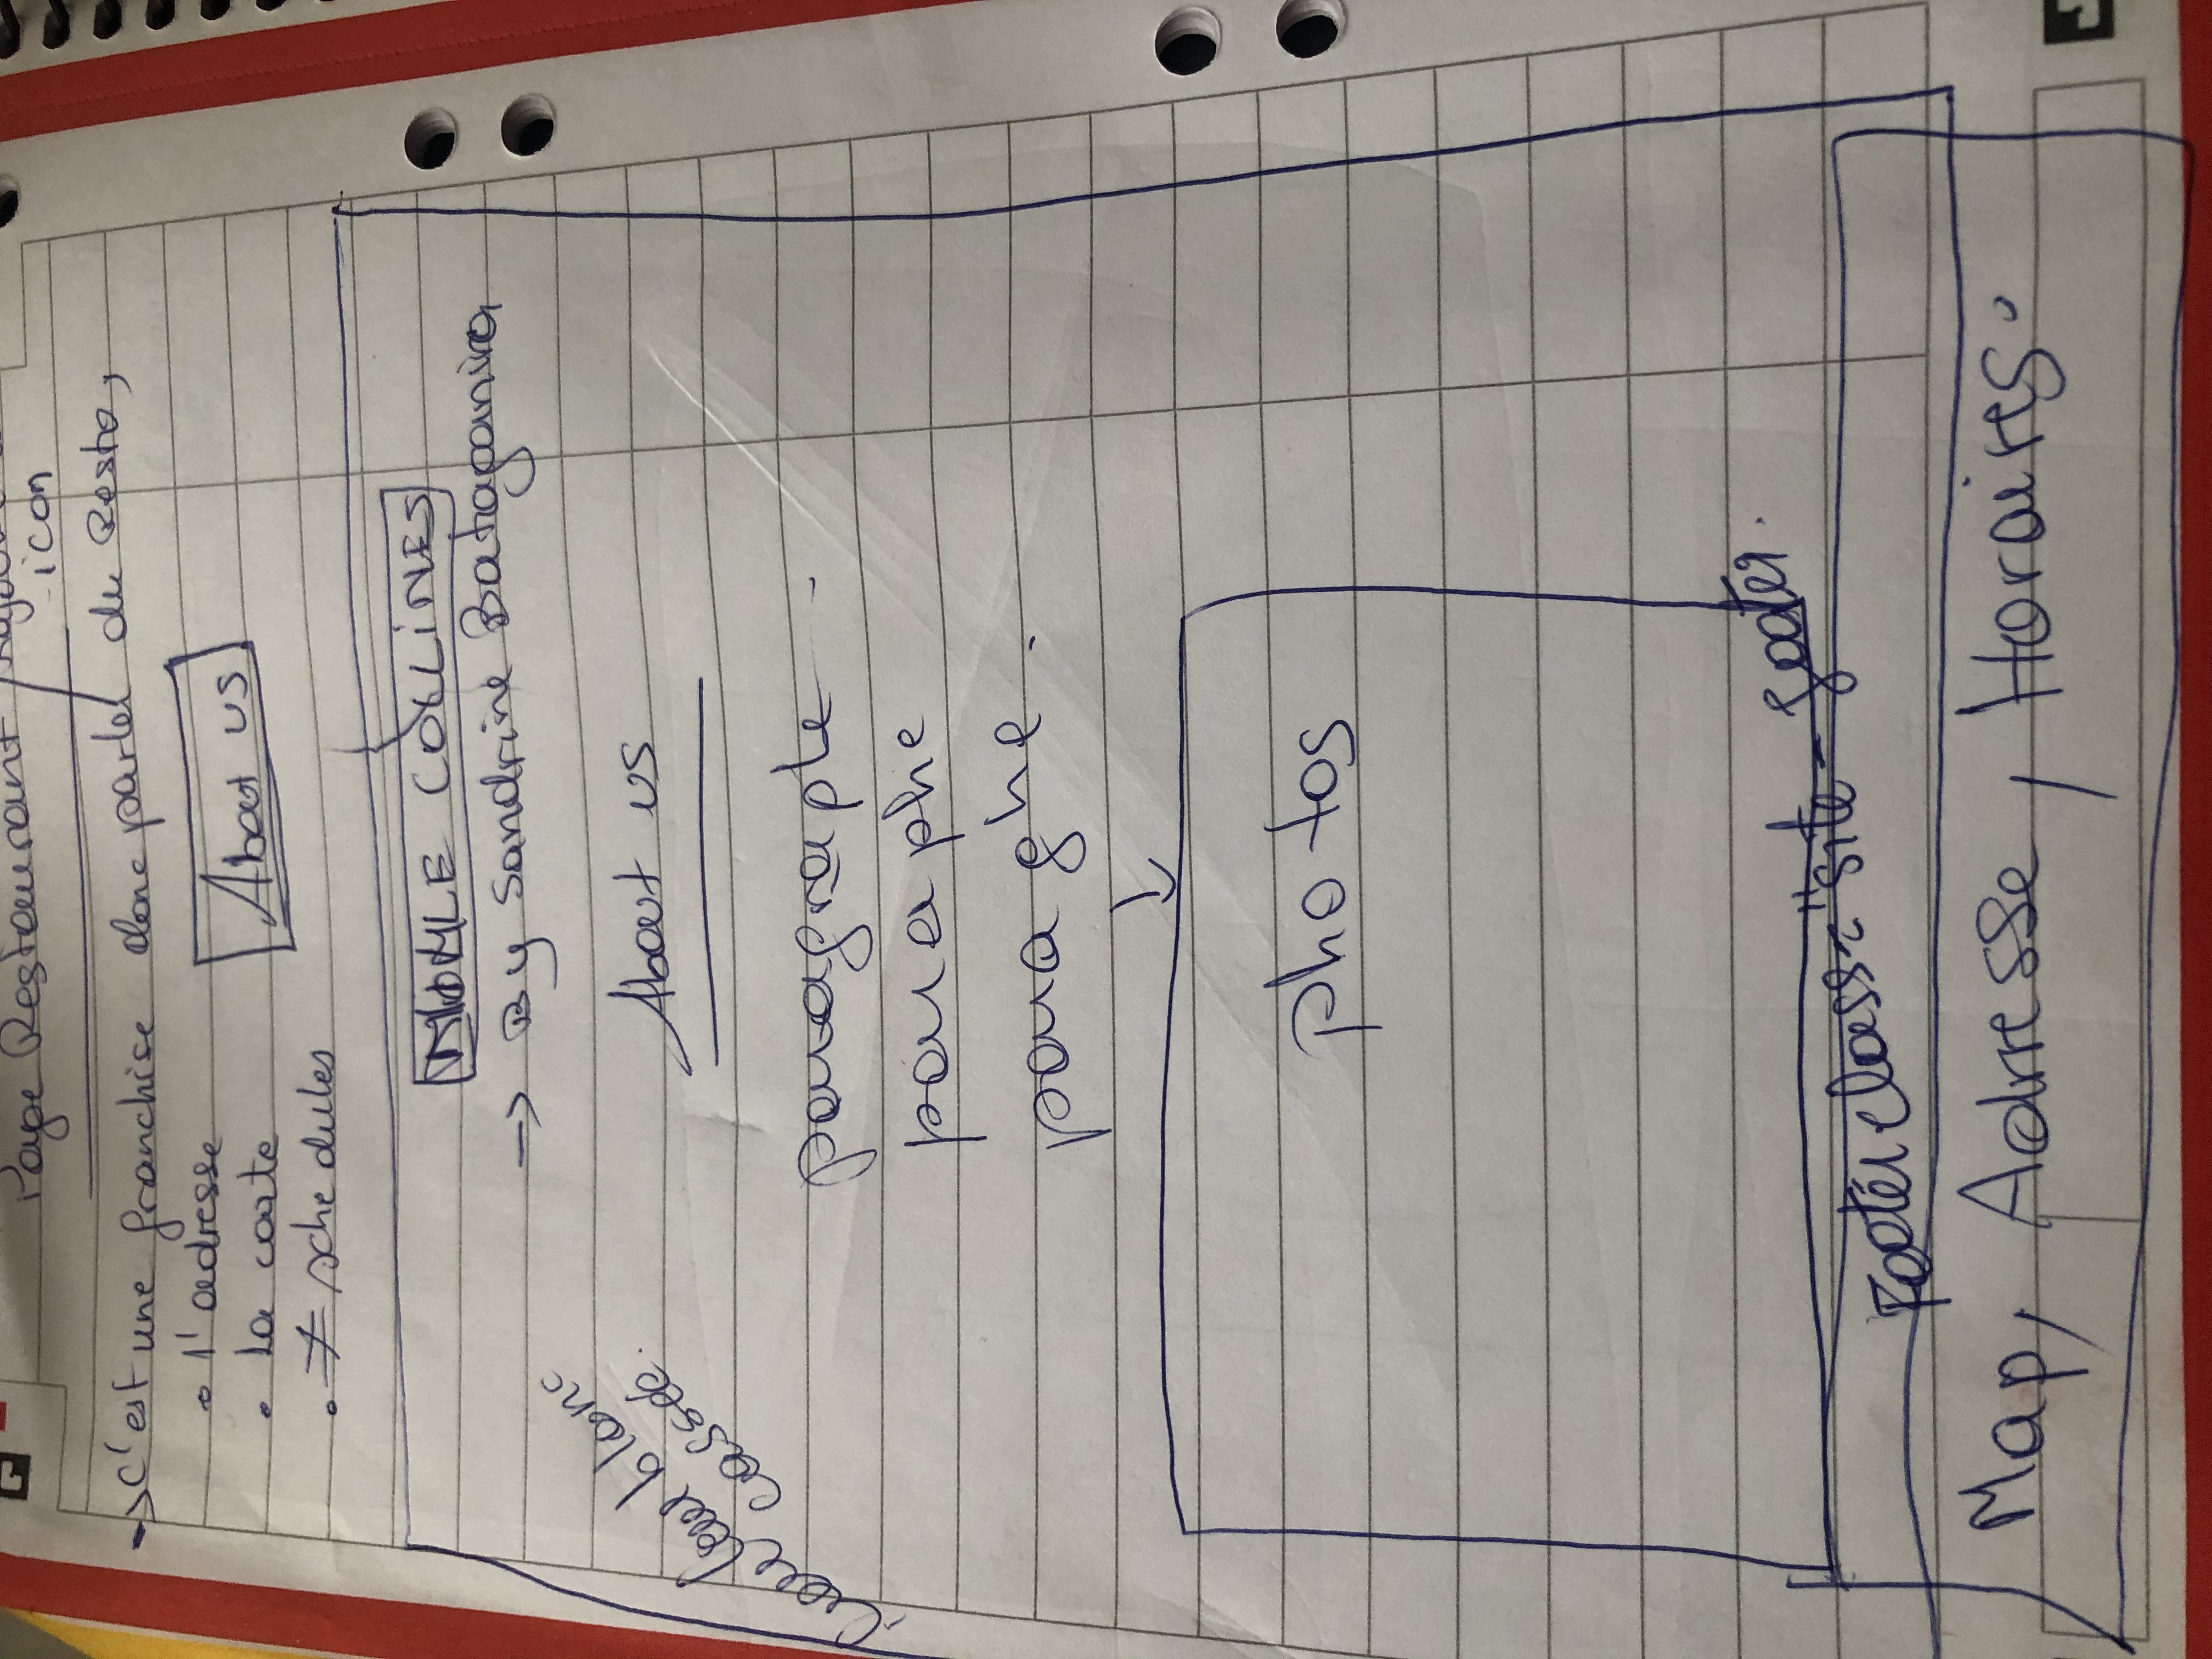 Page Restaurant /
icon
→ c'est une franchise donc parler du Resto,
• l'adresse
• La carte
• ≠ schedules
About us
MILLE COLLINES
→ By Sandrine
About us
Couleur blanc
cassée.
paragraphe -
paraphe
paraghe.
↓
photos
Footer class="site-footer.
Map, Adresse, Horaires.